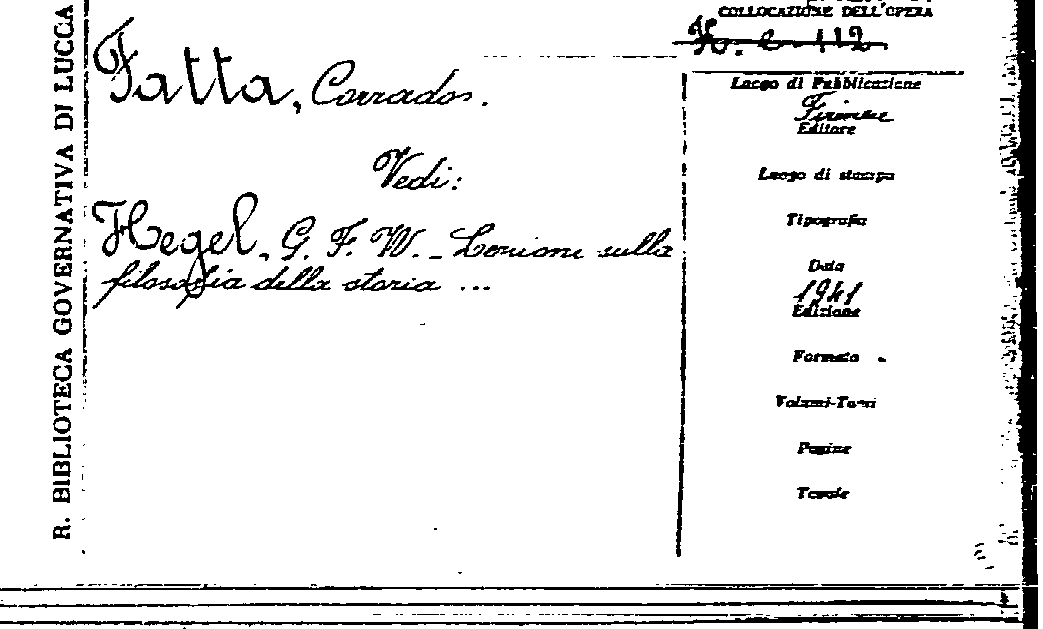 R. BIBLIOTECA GOVERNATIVA DI LUCCA
COLLOCAZIONE DELL'OPERA
Fatta, Corrado.
Vedi:
Hegel, G. F. W. - Lezioni sulla
filosofia della storia ...
Luogo di Pubblicazione
Firenze
Editore
Luogo di stampa
Tipografia
Data
1941
Edizione
Formato
Volumi-Tomi
Pagine
Tavole